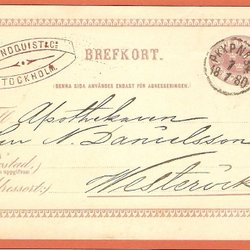 NDQUIST & C:
STOCKHOLM
BREFKORT.
(DENNA SIDA ANVÄNDES ENDAST FÖR ADRESSERINGEN.)
PKXP
7 80
Till
Apothekaren
N. Danielsson
Westervik